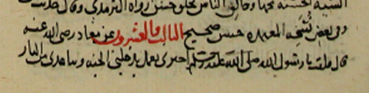 السيئة الحسنة تمحها وخالق الناس بخلق حسن رواه الترمذي وقال حديث
وفي بعض نسخه المعتمدة حسن صحيح الثالث والعشرون عن معاذ رضي الله عنه
قال قلت يا رسول الله صلى الله عليه وسلم اخبرني بعمل يدخلني الجنة ويباعدني من النار